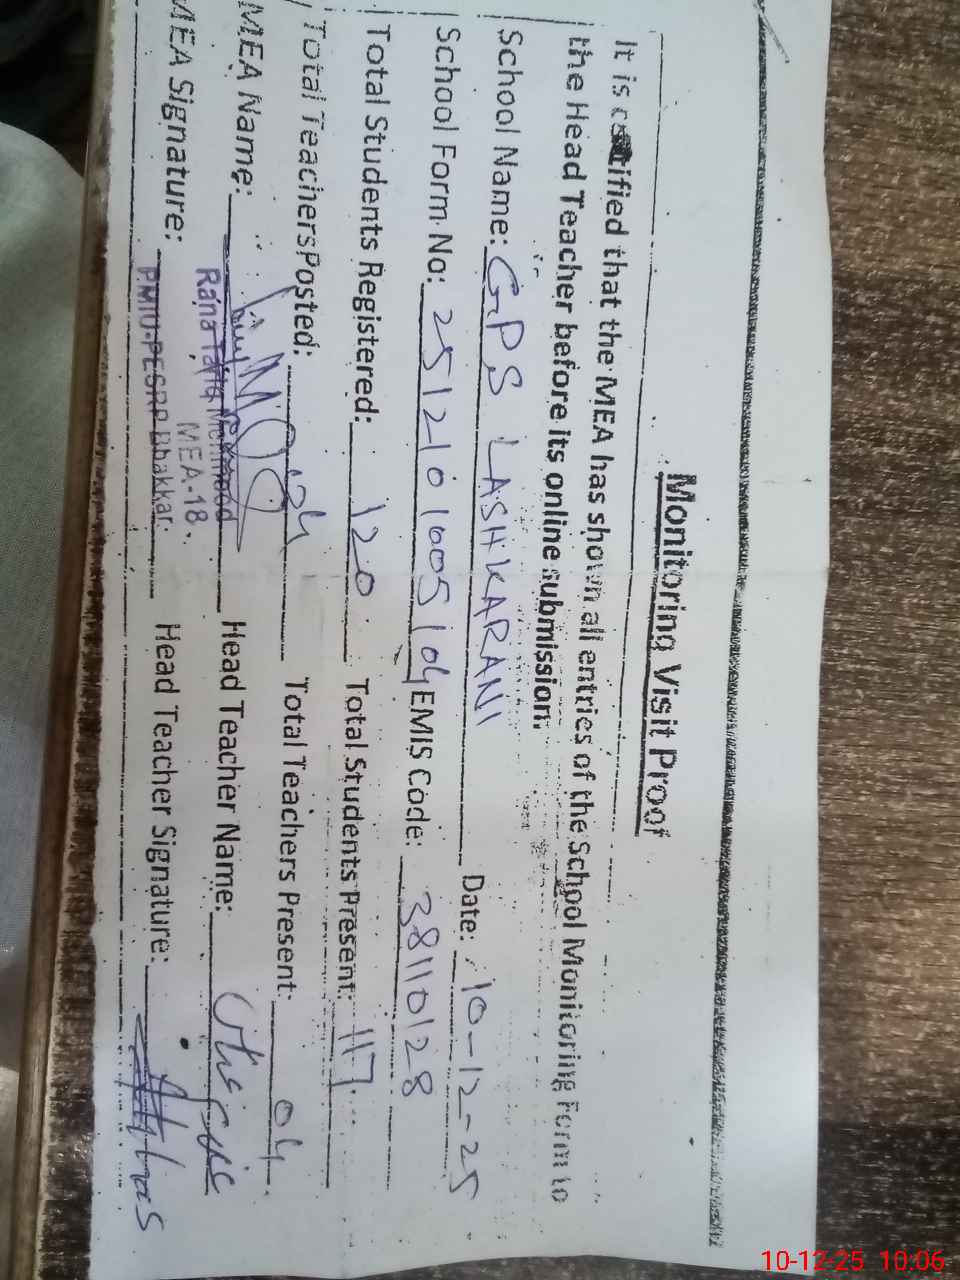 Monitoring Visit Proof
It is certified that the MEA has shown all entries of the School Monitoring Form to
the Head Teacher before its online submission.
School Name: GPS LASHKARANI Date: 10-12-25
School Form No: 2512101005104 EMIS Code: 38110128
Total Students Registered: 120 Total Students Present: 117
Total Teachers Posted: 04 Total Teachers Present: 04
MEA Name: Head Teacher Name:
Rana Tariq Mehmood
MEA-18
MEA Signature: PMIU-PESRP Bhakkar Head Teacher Signature:
10-12-25 10:06